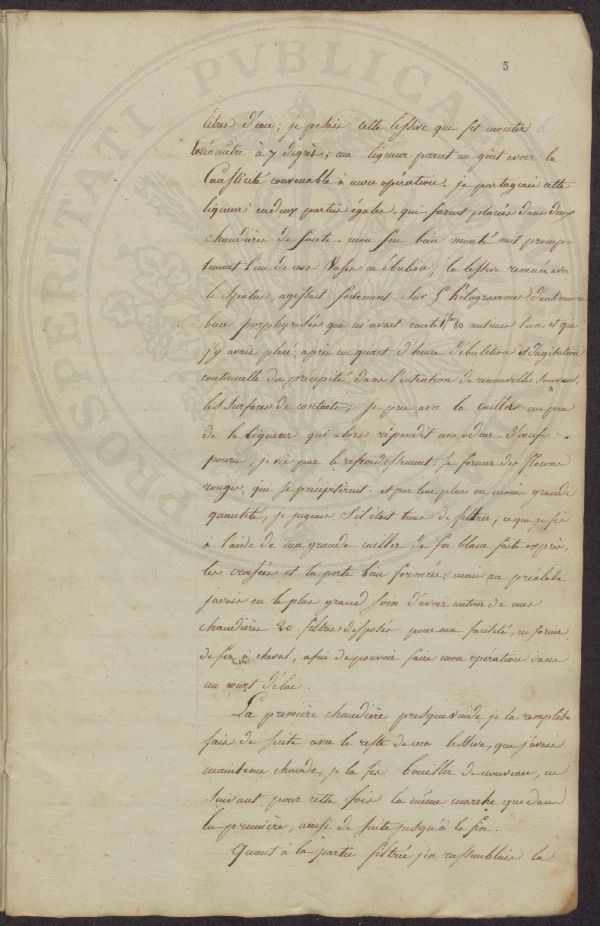 PROSPERITATI PVBLICA
5
litres d'eau; je pesais cette lessive que fit monter
à 7 degrès; ma liqueur parut au goût avoir la
Causticité convenable à mon opération. je partageai cette
liqueur en deux parties égales, qui furent placées dans deux
chaudières de fonte. mon feu bien monté mit promp-
tement l'un de mes Vases en ébulition, la lessive remuée avec
la Spatule, agissait fortement Sur 5 kilogrammes d'antimoine
bien porphyrisés qui m'avait couté 80 au que
j'y avais placé; après un quart d'heure d'ébulition et d'agitation
continuelle du précipité, dans l'intention de renouveller Souvent
les Surfaces de contacts, je pris avec la cuiller un peu
de la Liqueur qui alors répendit une odeur d'oeufs
pourris, je vis par le refroidissement, Se former des flocons
rouges, qui Se précipitèrent et par leur plus ou moins grande
quantité, je jugeais S'il était tems de filtrer, ce que je fis
à l'aide de ma grande cuiller de fer blanc faite exprès,
les croisées et la porte bien fermées; mais au préalable
j'avais eu le plus grand Soin d'avoir autour de mes
chaudières 20 filtres disposés pour ma facilité, en forme
de fer à cheval, afin de pouvoir faire mon opération dans
un court délai.
La première chaudière presque vuide je la remplis-
sais de suite avec le reste de ma lessive, que j'avais
maintenue chaude, je la fis bouillir de nouveau, en
Suivant pour cette fois la même marche que dans
la première, ainsi de suite jusqu'à la fin.
Quant à la partie filtrée j'en rassemblais la